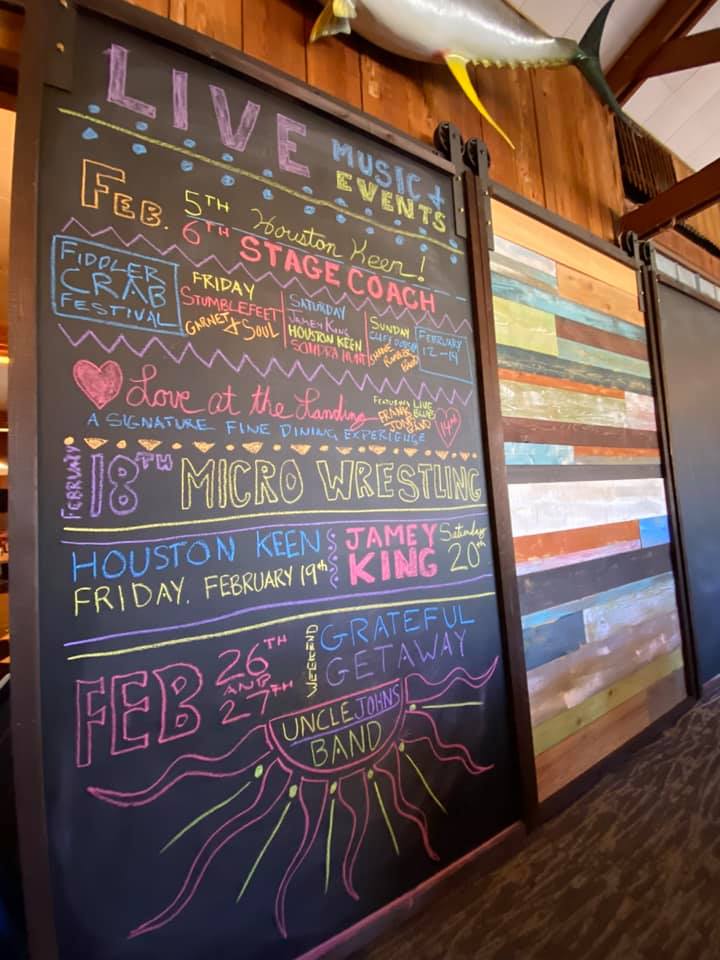 LIVE
MUSIC +
EVENTS
FEB. 5TH Houston Keen!
6TH STAGE COACH
FIDDLER
CRAB
FESTIVAL
FRIDAY
STUMBLEFEET
GARNET & SOUL
SATURDAY
JAMEY KING
HOUSTON KEEN
SUNDAY
BAND
FEBRUARY
12-14
Love at the Landing
FEATURING
FRANK
JONES
LIVE
BAND
14TH
A SIGNATURE FINE DINING EXPERIENCE
FEBRUARY
18TH MICRO WRESTLING
HOUSTON KEEN
FRIDAY. FEBRUARY 19th
JAMEY
KING
Saturday
20th
FEB 26TH
AND
27TH
WEEKEND
GRATEFUL
GETAWAY
UNCLE JOHNS
BAND